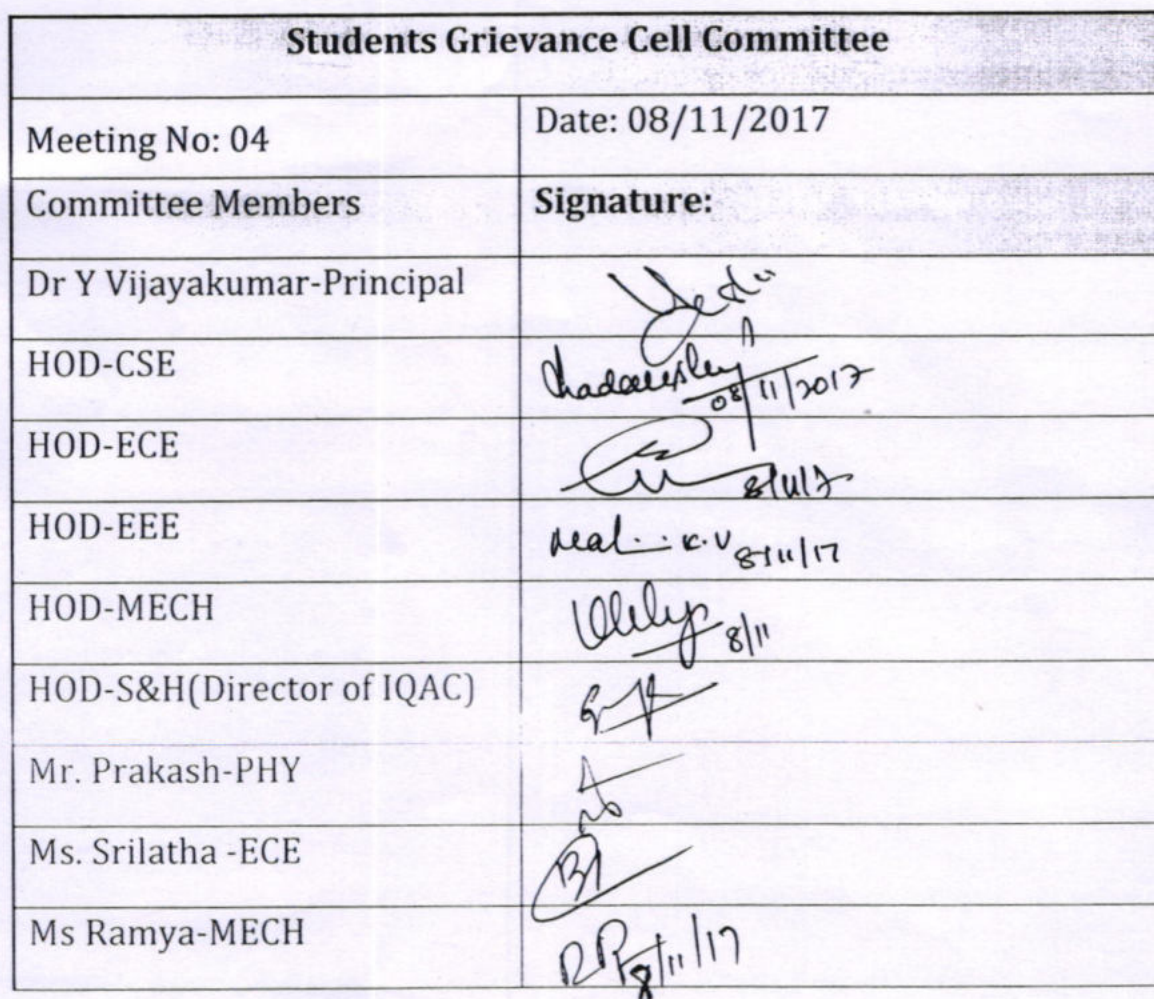 Students Grievance Cell Committee
Meeting No: 04 Date: 08/11/2017
Committee Members Signature:
Dr Y Vijayakumar-Principal
HOD-CSE 08/11/2017
HOD-ECE 8/11/17
HOD-EEE K.V 8/11/17
HOD-MECH 8/11
HOD-S&H(Director of IQAC)
Mr. Prakash-PHY
Ms. Srilatha -ECE
Ms Ramya-MECH 8/11/17